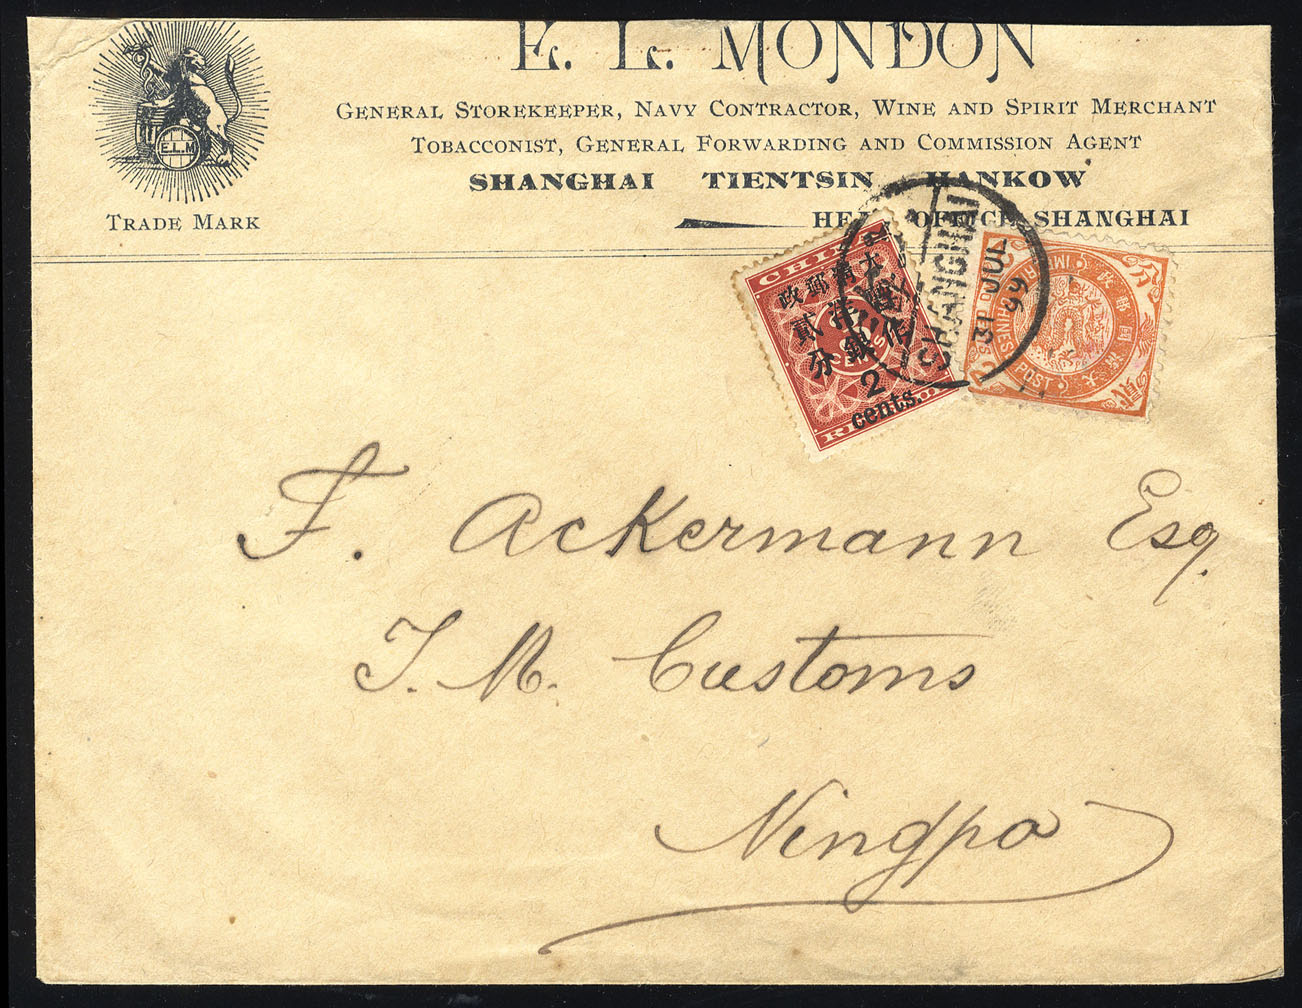 E. L. MONDON
GENERAL STOREKEEPER, NAVY CONTRACTOR, WINE AND SPIRIT MERCHANT
TOBACCONIST, GENERAL FORWARDING AND COMMISSION AGENT
SHANGHAI TIENTSIN HANKOW
HEAD OFFICE, SHANGHAI
E.L.M
TRADE MARK
CHINA
大清郵政
貳分
2
cents.
SHANGHAI
31 JUL
99
CHINESE POST
大清國郵政
分
貳
F. Ackermann Esq.
I. M. Customs
Ningpo